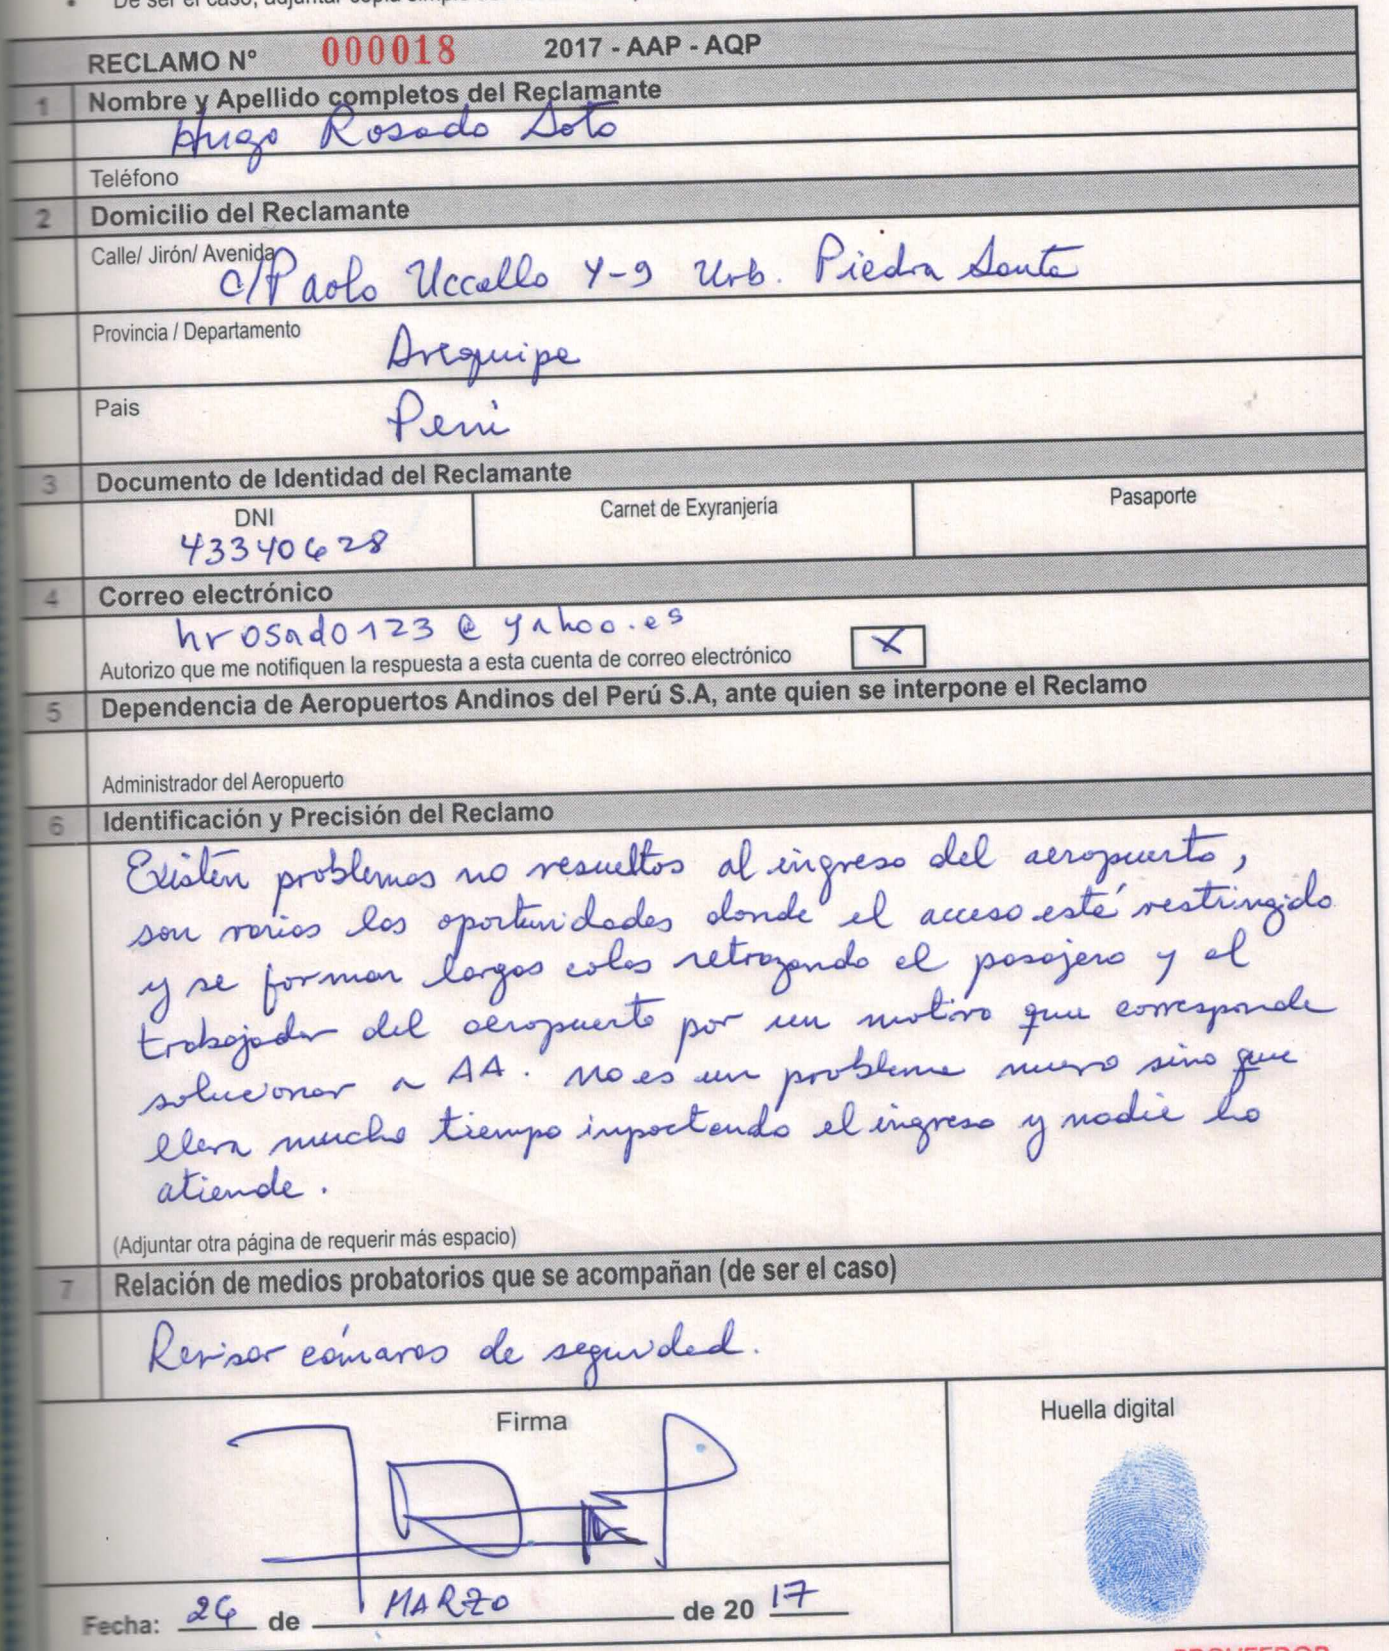 RECLAMO N° 000018 2017 - AAP - AQP
1 Nombre y Apellido completos del Reclamante
Hugo Rosado Soto
Teléfono
2 Domicilio del Reclamante
Calle/ Jirón/ Avenida
c/Paolo Uccello Y-9 Urb. Piedra Santa
Provincia / Departamento
Arequipa
Pais
Perú
3 Documento de Identidad del Reclamante
DNI Carnet de Exyranjería Pasaporte
43340628
4 Correo electrónico
hrosado123@yahoo.es
Autorizo que me notifiquen la respuesta a esta cuenta de correo electrónico X
5 Dependencia de Aeropuertos Andinos del Perú S.A, ante quien se interpone el Reclamo
Administrador del Aeropuerto
6 Identificación y Precisión del Reclamo
Existen problemas no resueltos al ingreso del aeropuerto,
son varias las oportunidades donde el acceso está restringido
y se forman largas colas retrazando el pasajero y al
trabajador del aeropuerto por un motivo que corresponde
solucionar a AA. No es un problema nuevo sino que
lleva mucho tiempo impactando el ingreso y nadie lo
atiende.
(Adjuntar otra página de requerir más espacio)
7 Relación de medios probatorios que se acompañan (de ser el caso)
Revisar cámaras de seguridad.
Firma Huella digital
Fecha: 26 de MARZO de 2017